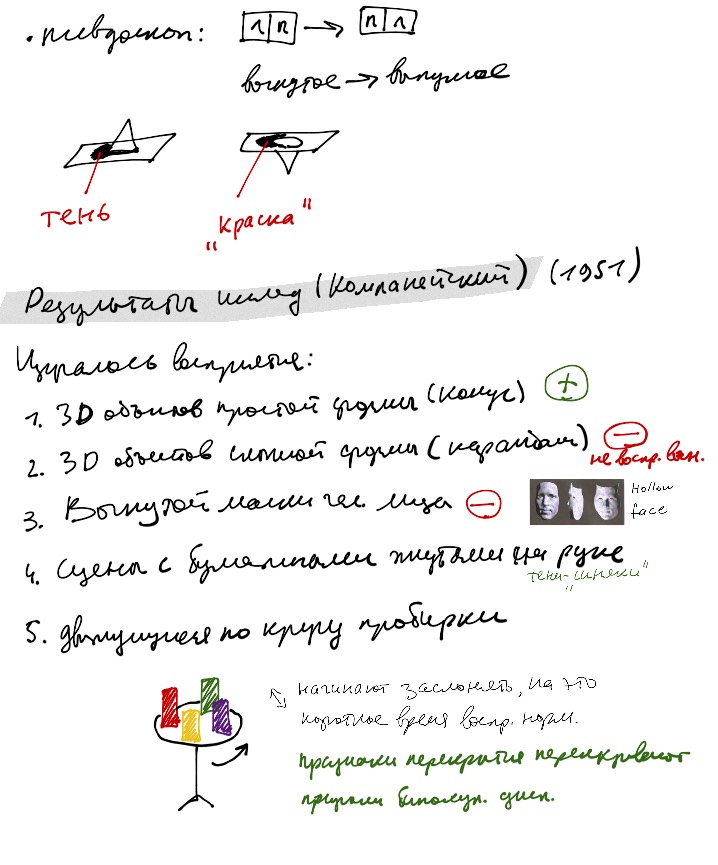 • псевдоскоп: л п → п л
вогнутое → выпуклое
тень
"краска"
Результаты исслед (Компанейский) (1951)
Изучалось восприятие:
1. 3D объектов простой формы (конус) +
2. 3D объектов сложной формы (карандаш) −
не воспр. вогн.
3. Вогнутой маски чел. лица −
Hollow
face
4. Сцены с бумажными жгутами на руке
тени-"синяки"
5. движущиеся по кругу пробирки
начинают заслонять, на это
короткое время воспр. норм.
признаки перекрытия перекрывают
признаки бинокул. дисп.